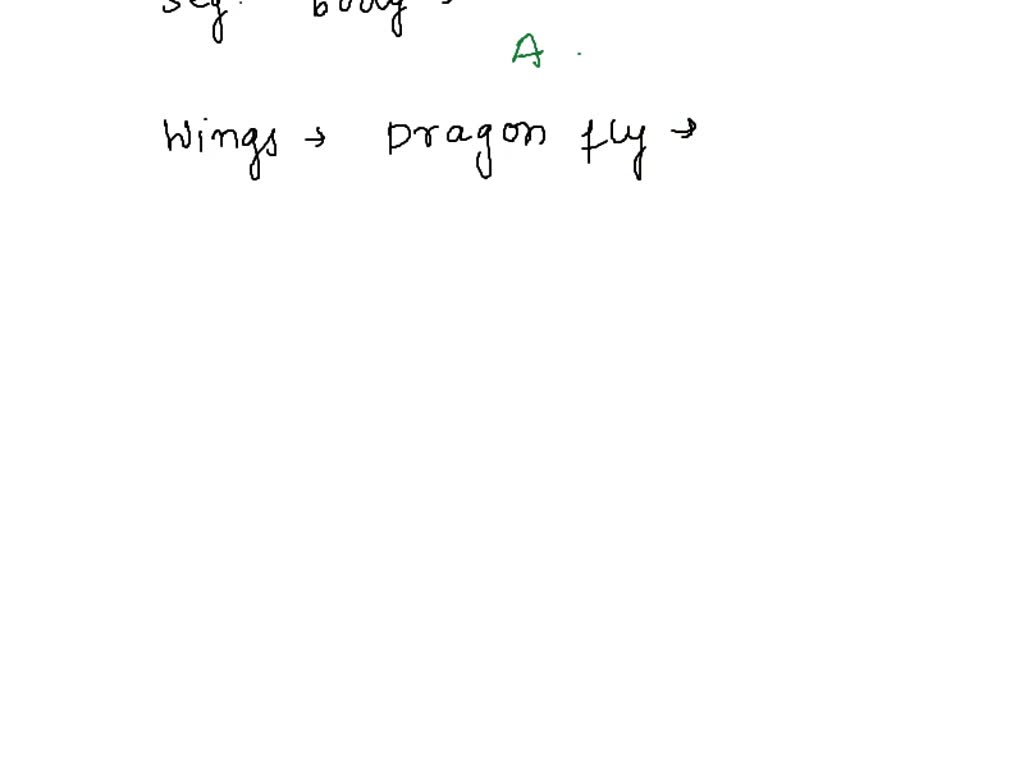 seg. body →
A .
Wings → Dragon fly →